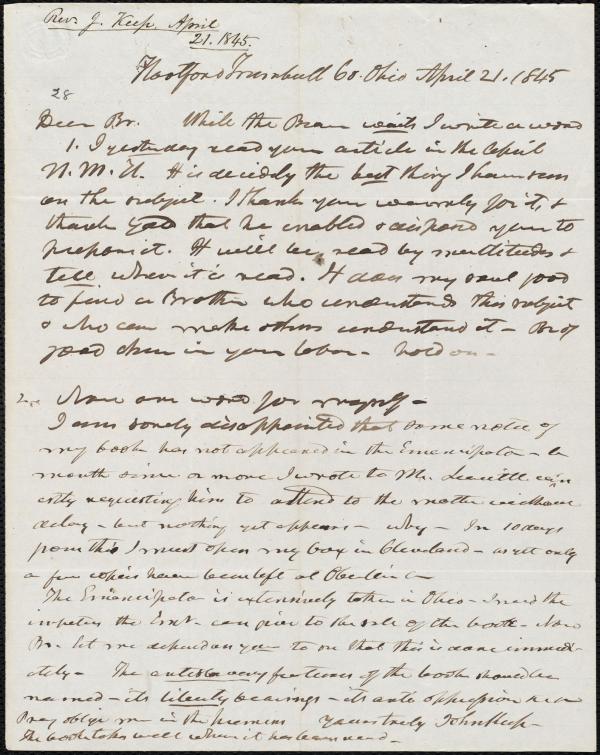 Rev. J. Keep April
21. 1845.
Hartford Trumbull Co. Ohio April 21. 1845
28
Dear Br. While the Bean waits I write a word
1. I yesterday read your article in the April
N. M. U. It is decidedly the best thing I have seen
on the subject. I thank you warmly for it, &
thank God that he enabled & disposed you to
prepare it. It will be read by multitudes &
tell when it is read. It does my soul good
to find a Brother who understands this subject
& who can make others understand it - Be of
good cheer in your labor - hold on -
2. Now one word for myself -
I am sorely disappointed that some notice of
my book has not appeared in the Emancipator - a
month since or more I wrote to Mr. Leavitt earn
estly requesting him to attend to the matter without
delay - but nothing yet appears - why - In 10 days
from this I must open my box in Cleveland - as yet only
a few copies have been left at Oberlin -
The Emancipator is extensively taken in Ohio - I need the
impetus the Emt. can give to the sale of the book - Now
Br. let me depend on you to see that this is done immedi-
ately - The antislavery features of the book should be
named - its liberty bearings - its anti oppression
Pray oblige me in the premises Yours truly John Keep -
The book takes well when it has been read -